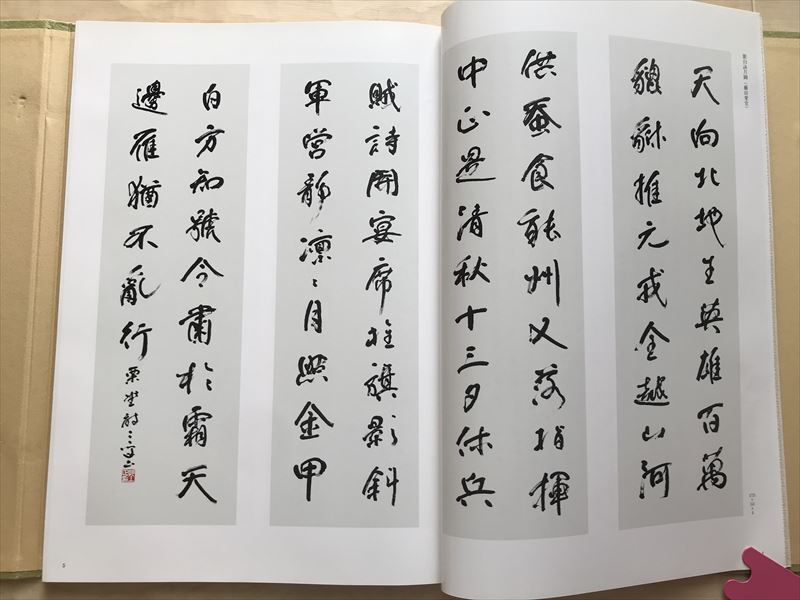 天向北地生英雄百萬
貔貅推元戎全越山河
供蚕食能州又落指揮
中正遇清秋十三夕休兵
賦詩開宴席旌旗影斜
軍営静凛々月照金甲
白方知號令肅於霜天
邊雁猶不亂行